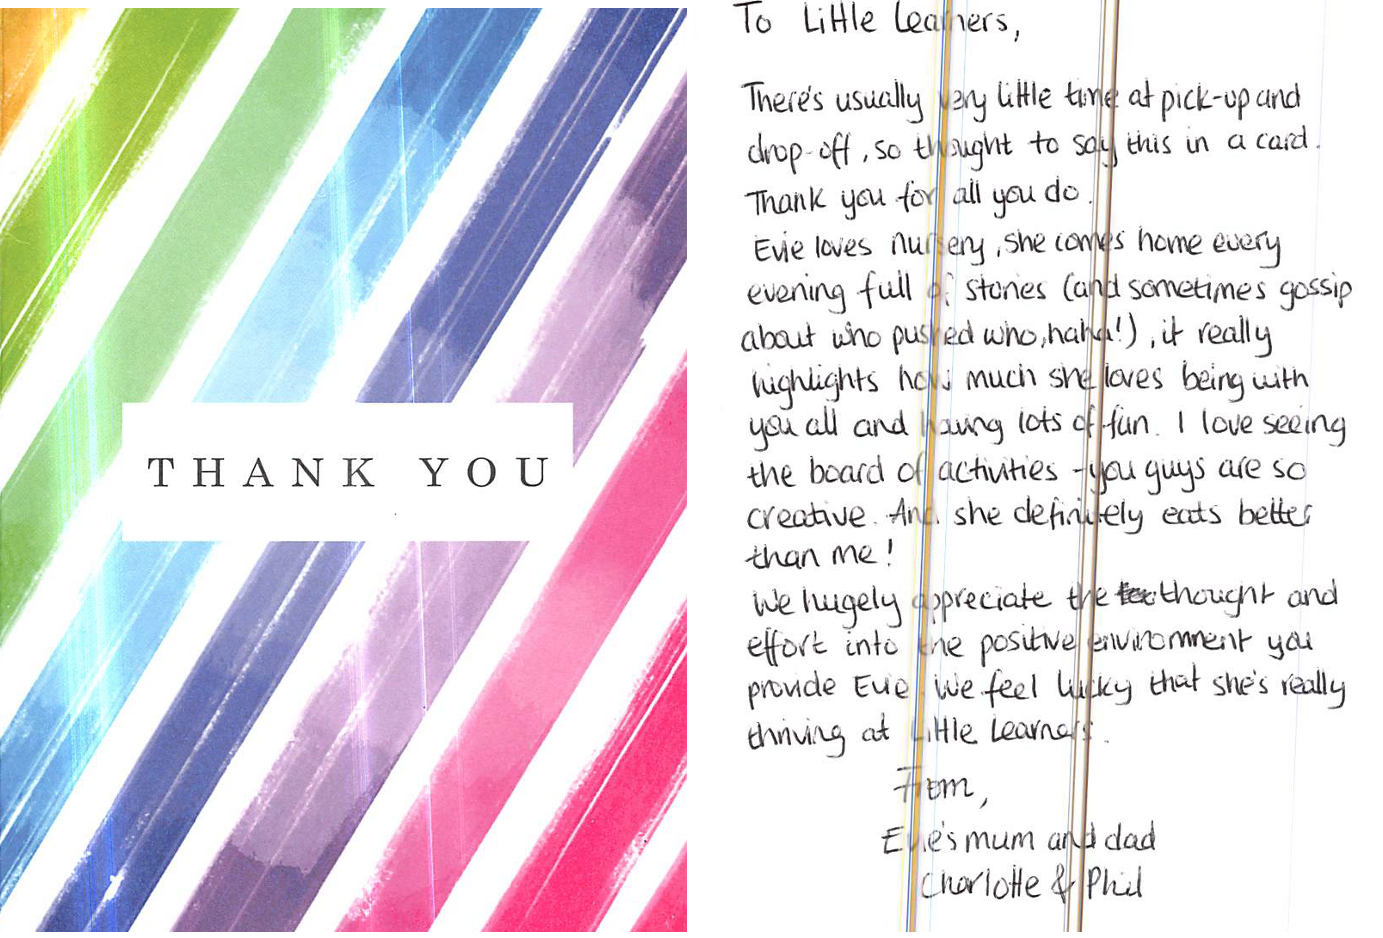 THANK YOU
To Little Learners,
There's usually very little time at pick-up and
drop-off, so thought to say this in a card.
Thank you for all you do.
Evie loves nursery, she comes home every
evening full of stories (and sometimes gossip
about who pushed who, haha!), it really
highlights how much she loves being with
you all and having lots of fun. I love seeing
the board of activities - you guys are so
creative. And she definitely eats better
than me!
We hugely appreciate the thought and
effort into the positive environment you
provide Evie. We feel lucky that she's really
thriving at Little Learners.
From,
Evie's mum and dad
Charlotte & Phil